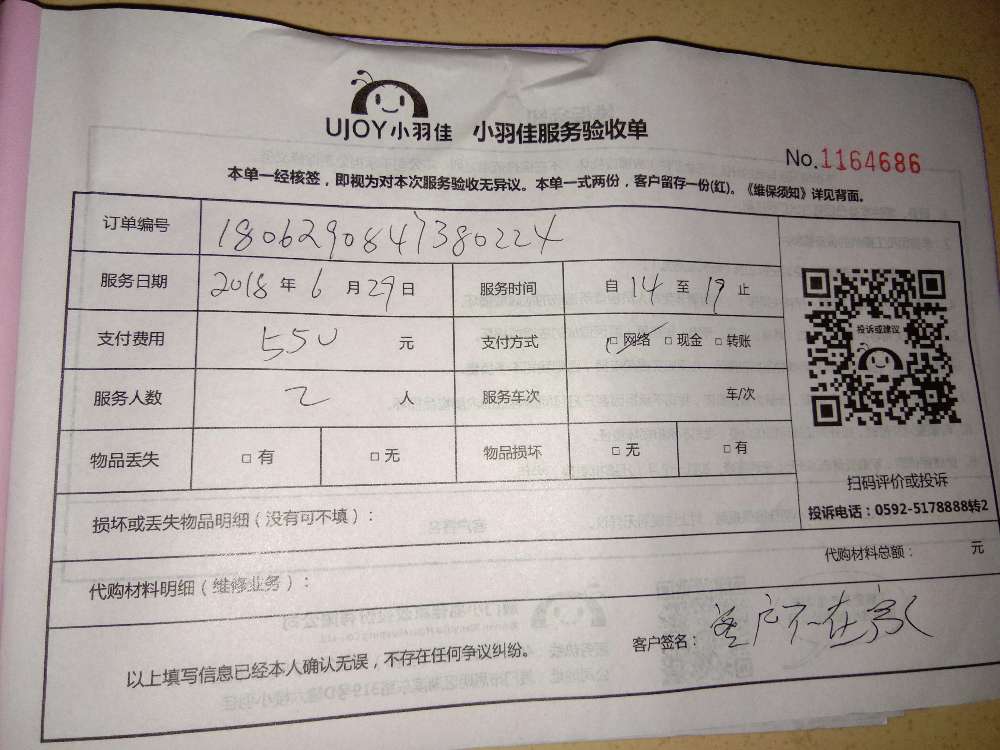 UJOY小羽佳 小羽佳服务验收单
No.1164686
本单一经核签，即视为对本次服务验收无异议。本单一式两份，客户留存一份(红)。《维保须知》详见背面。
订单编号 18062908417380224
服务日期 2018 年 6 月 29 日 服务时间 自 14 至 19 止
支付费用 550 元 支付方式 □ 网络 □ 现金 □ 转账
服务人数 2 人 服务车次 车/次
物品丢失 □ 有 □ 无 物品损坏 □ 无 □ 有
投诉或建议
扫码评价或投诉
投诉电话：0592-5178888转2
损坏或丢失物品明细（没有可不填）：
代购材料明细（维修业务）： 代购材料总额： 元
以上填写信息已经本人确认无误，不存在任何争议纠纷。 客户签名： 客户不在家